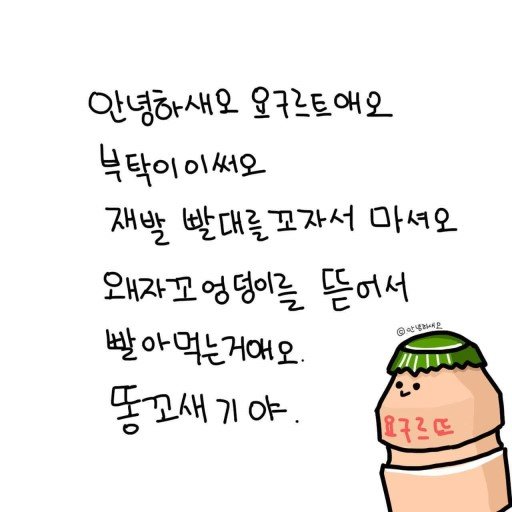 안녕하새오 요구르트애오
부탁이이써오
재발 빨대를꼬자서 마셔오
왜자꼬엉덩이를 뜯어서
빨아먹는거애오.
똥꼬새기야.
©안녕하새요
요구르뜨